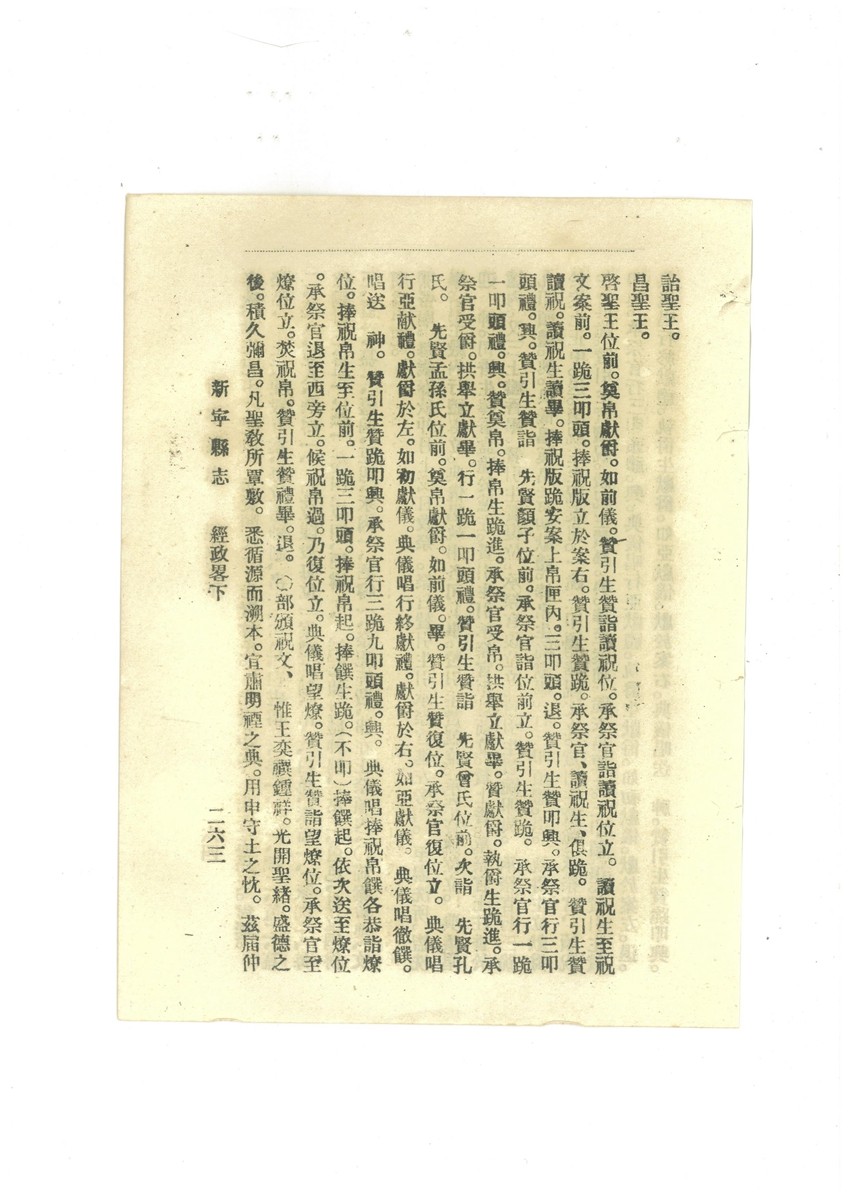 詒聖王。
昌聖王。
啓聖王位前。奠帛獻爵。如前儀。贊引生贊詣讀祝位。承祭官詣讀祝位立。 讀祝生至祝
文案前。一跪三叩頭。捧祝版立於案右。贊引生贊跪。承祭官、讀祝生、俱跪。 贊引生贊
讀祝。讀祝生讀畢。捧祝版跪安案上帛匣內。三叩頭。退。贊引生贊叩興。承祭官行三叩
頭禮。興。贊引生贊詣 先賢顏子位前。承祭官詣位前立。贊引生贊跪。 承祭官行一跪
一叩頭禮。興。贊奠帛。捧帛生跪進。承祭官受帛。拱舉立獻畢。贊獻爵。執爵生跪進。承
祭官受爵。拱舉立獻畢。行一跪一叩頭禮。贊引生贊詣 先賢曾氏位前。次詣 先賢孔
氏。 先賢孟孫氏位前。奠帛獻爵。如前儀。畢。贊引生贊復位。承祭官復位立。 典儀唱
行亞献禮。獻爵於左。如初獻儀。典儀唱行終獻禮。獻爵於右。如亞獻儀。 典儀唱徹饌。
唱送 神。 贊引生贊跪叩興。承祭官行三跪九叩頭禮。興。 典儀唱捧祝帛饌各恭詣燎
位。捧祝帛生至位前。一跪三叩頭。捧祝帛起。捧饌生跪。(不叩)捧饌起。依次送至燎位
。承祭官退至西旁立。候祝帛過。乃復位立。典儀唱望燎。贊引生贊詣望燎位。承祭官至
燎位立。焚祝帛。贊引生贊禮畢。退。〇部頒祝文、 惟王奕禩鍾祥。光開聖緒。盛德之
後。積久彌昌。凡聖敎所覃敷。 悉循源而溯本。宜肅明禋之典。用申守土之忱。 茲屆仲
新寧縣志 經政畧下 二六三